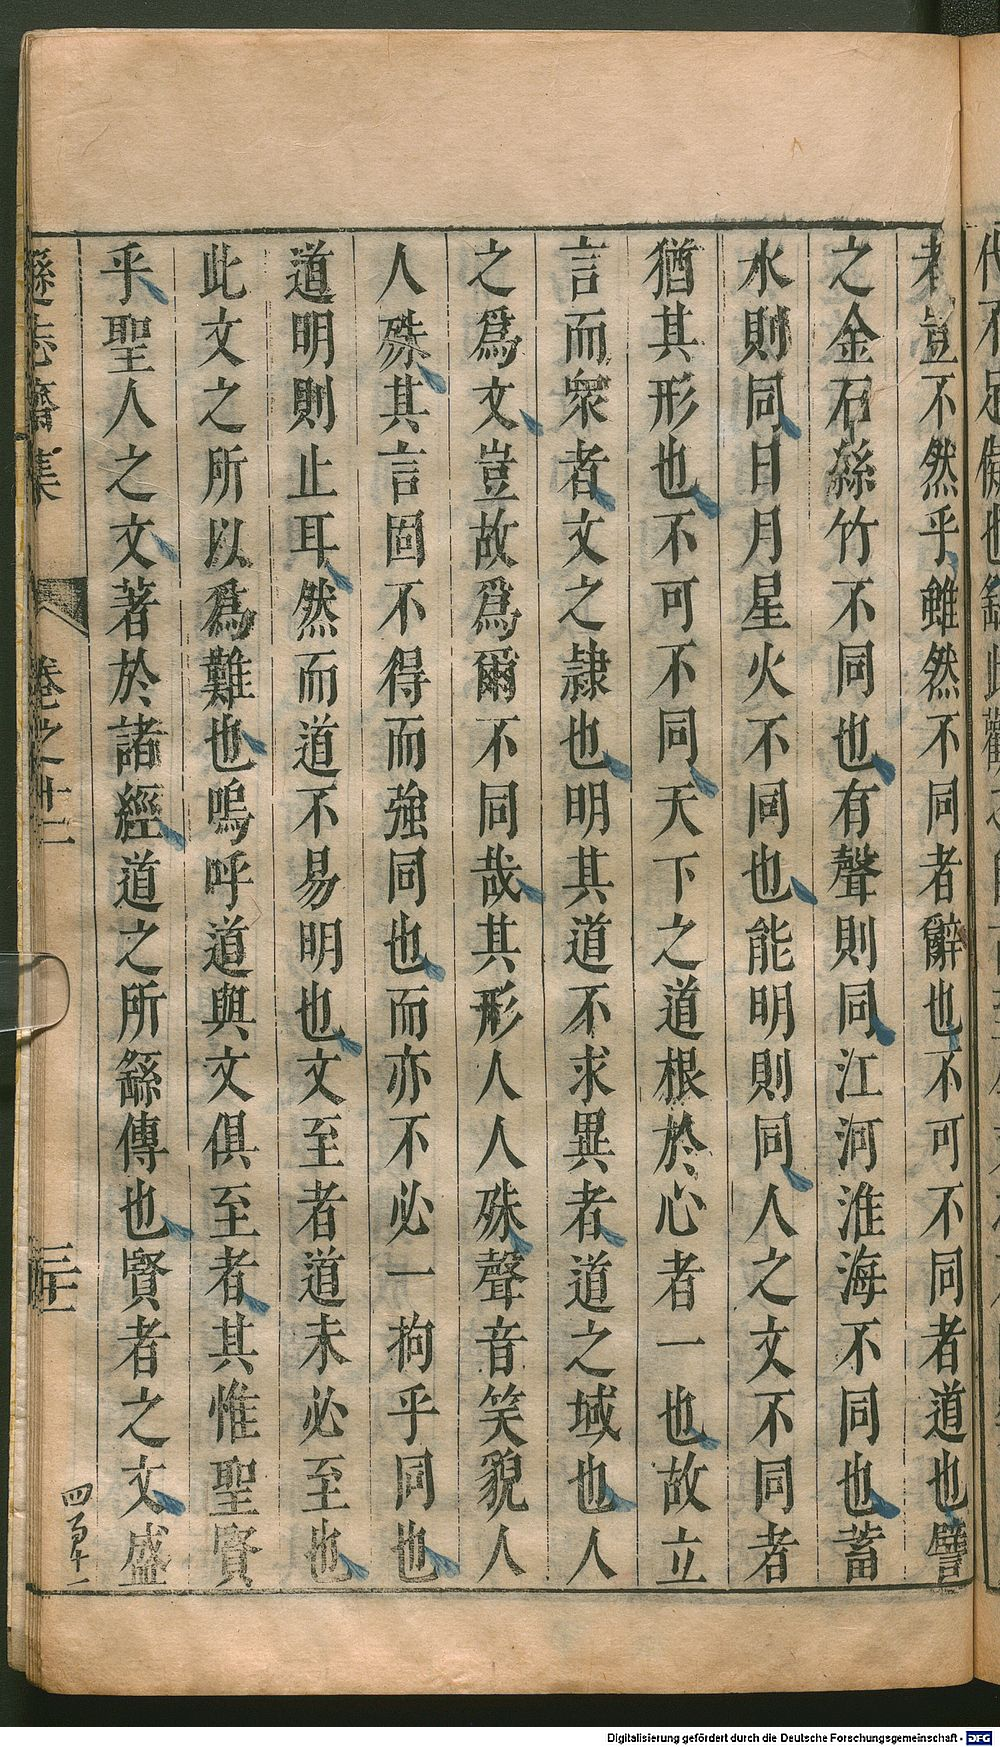 者豈不然乎雖然不同者辭也不可不同者道也譬
之金石絲竹不同也有聲則同江河淮海不同也蓄
水則同日月星火不同也能明則同人之文不同者
猶其形也不可不同天下之道根於心者一也故立
言而衆者文之隷也明其道不求異者道之域也人
之爲文豈故爲爾不同哉其形人人殊聲音笑貌人
人殊其言固不得而強同也而亦不必一拘乎同也
道明則止耳然而道不易明也文至者道未必至也
此文之所以爲難也嗚呼道與文俱至者其惟聖賢
乎聖人之文著於諸經道之所繇傳也賢者之文盛
遜志齋集
卷之十二
Digitalisierung gefördert durch die Deutsche Forschungsgemeinschaft - DFG